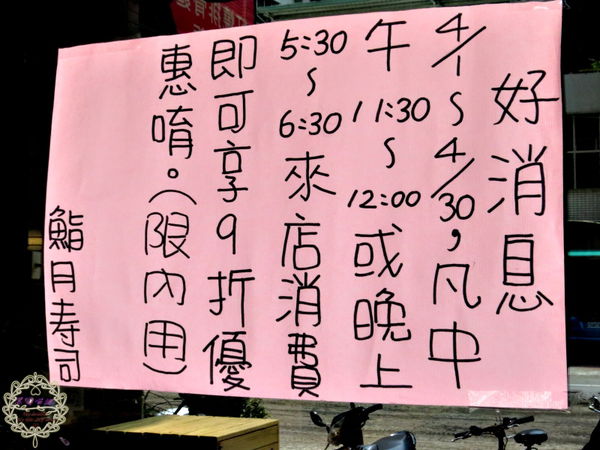 好消息
4/1~4/30，凡中
午11:30~12:00或晚上
5:30~6:30來店消費
即可享9折優
惠唷。(限內用)
鮨月寿司